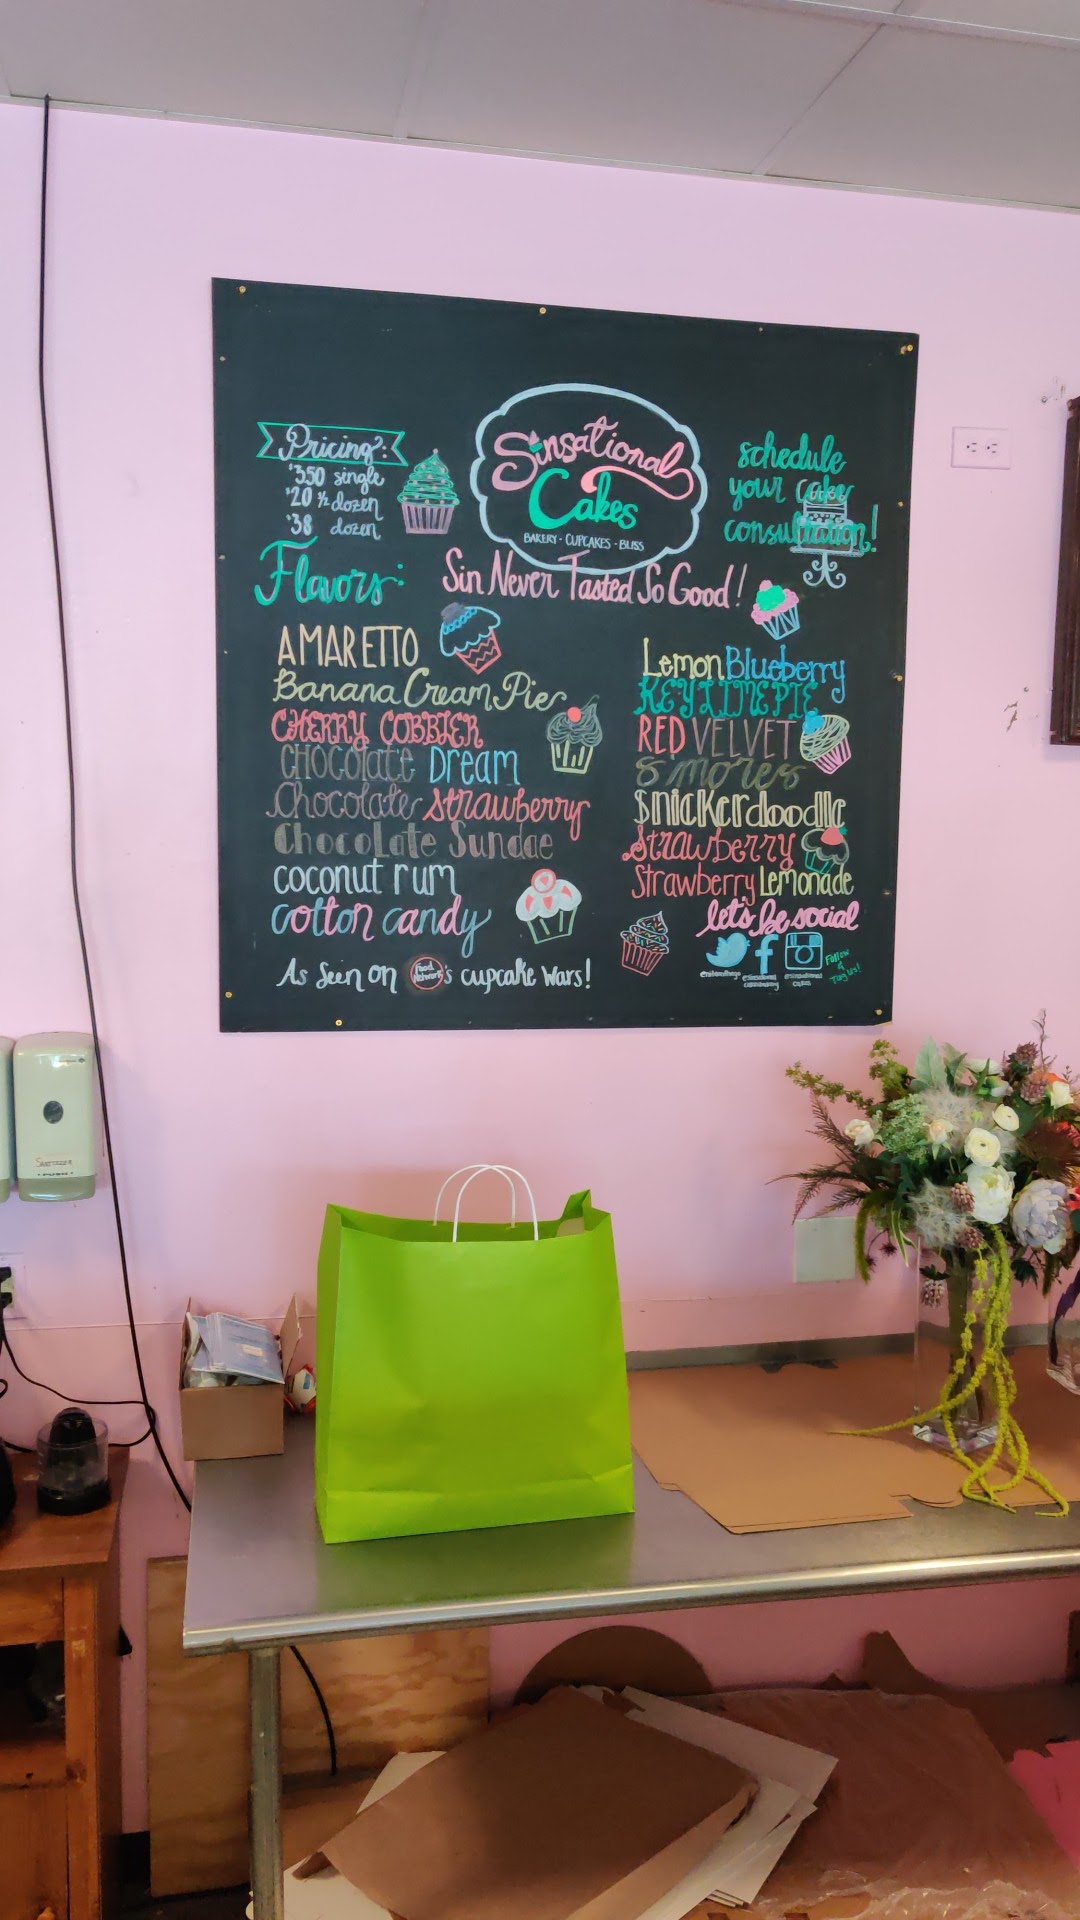 Pricing:
$3.50 single
$20 ½ dozen
$38 dozen
Sinsational
Cakes
BAKERY · CUPCAKES · BLISS
schedule
your cake
consultation!
Flavors:
Sin Never Tasted So Good!
AMARETTO
Banana Cream Pie
CHERRY COBBLER
CHOCOLATE DREAM
Chocolate Strawberry
Chocolate Sundae
coconut rum
cotton candy
Lemon Blueberry
KEY LIME PIE
RED VELVET
S'mores
Snickerdoodle
Strawberry
Strawberry Lemonade
let's be social
Follow
&
Tag Us!
As Seen on food network's cupcake wars!
PUSH